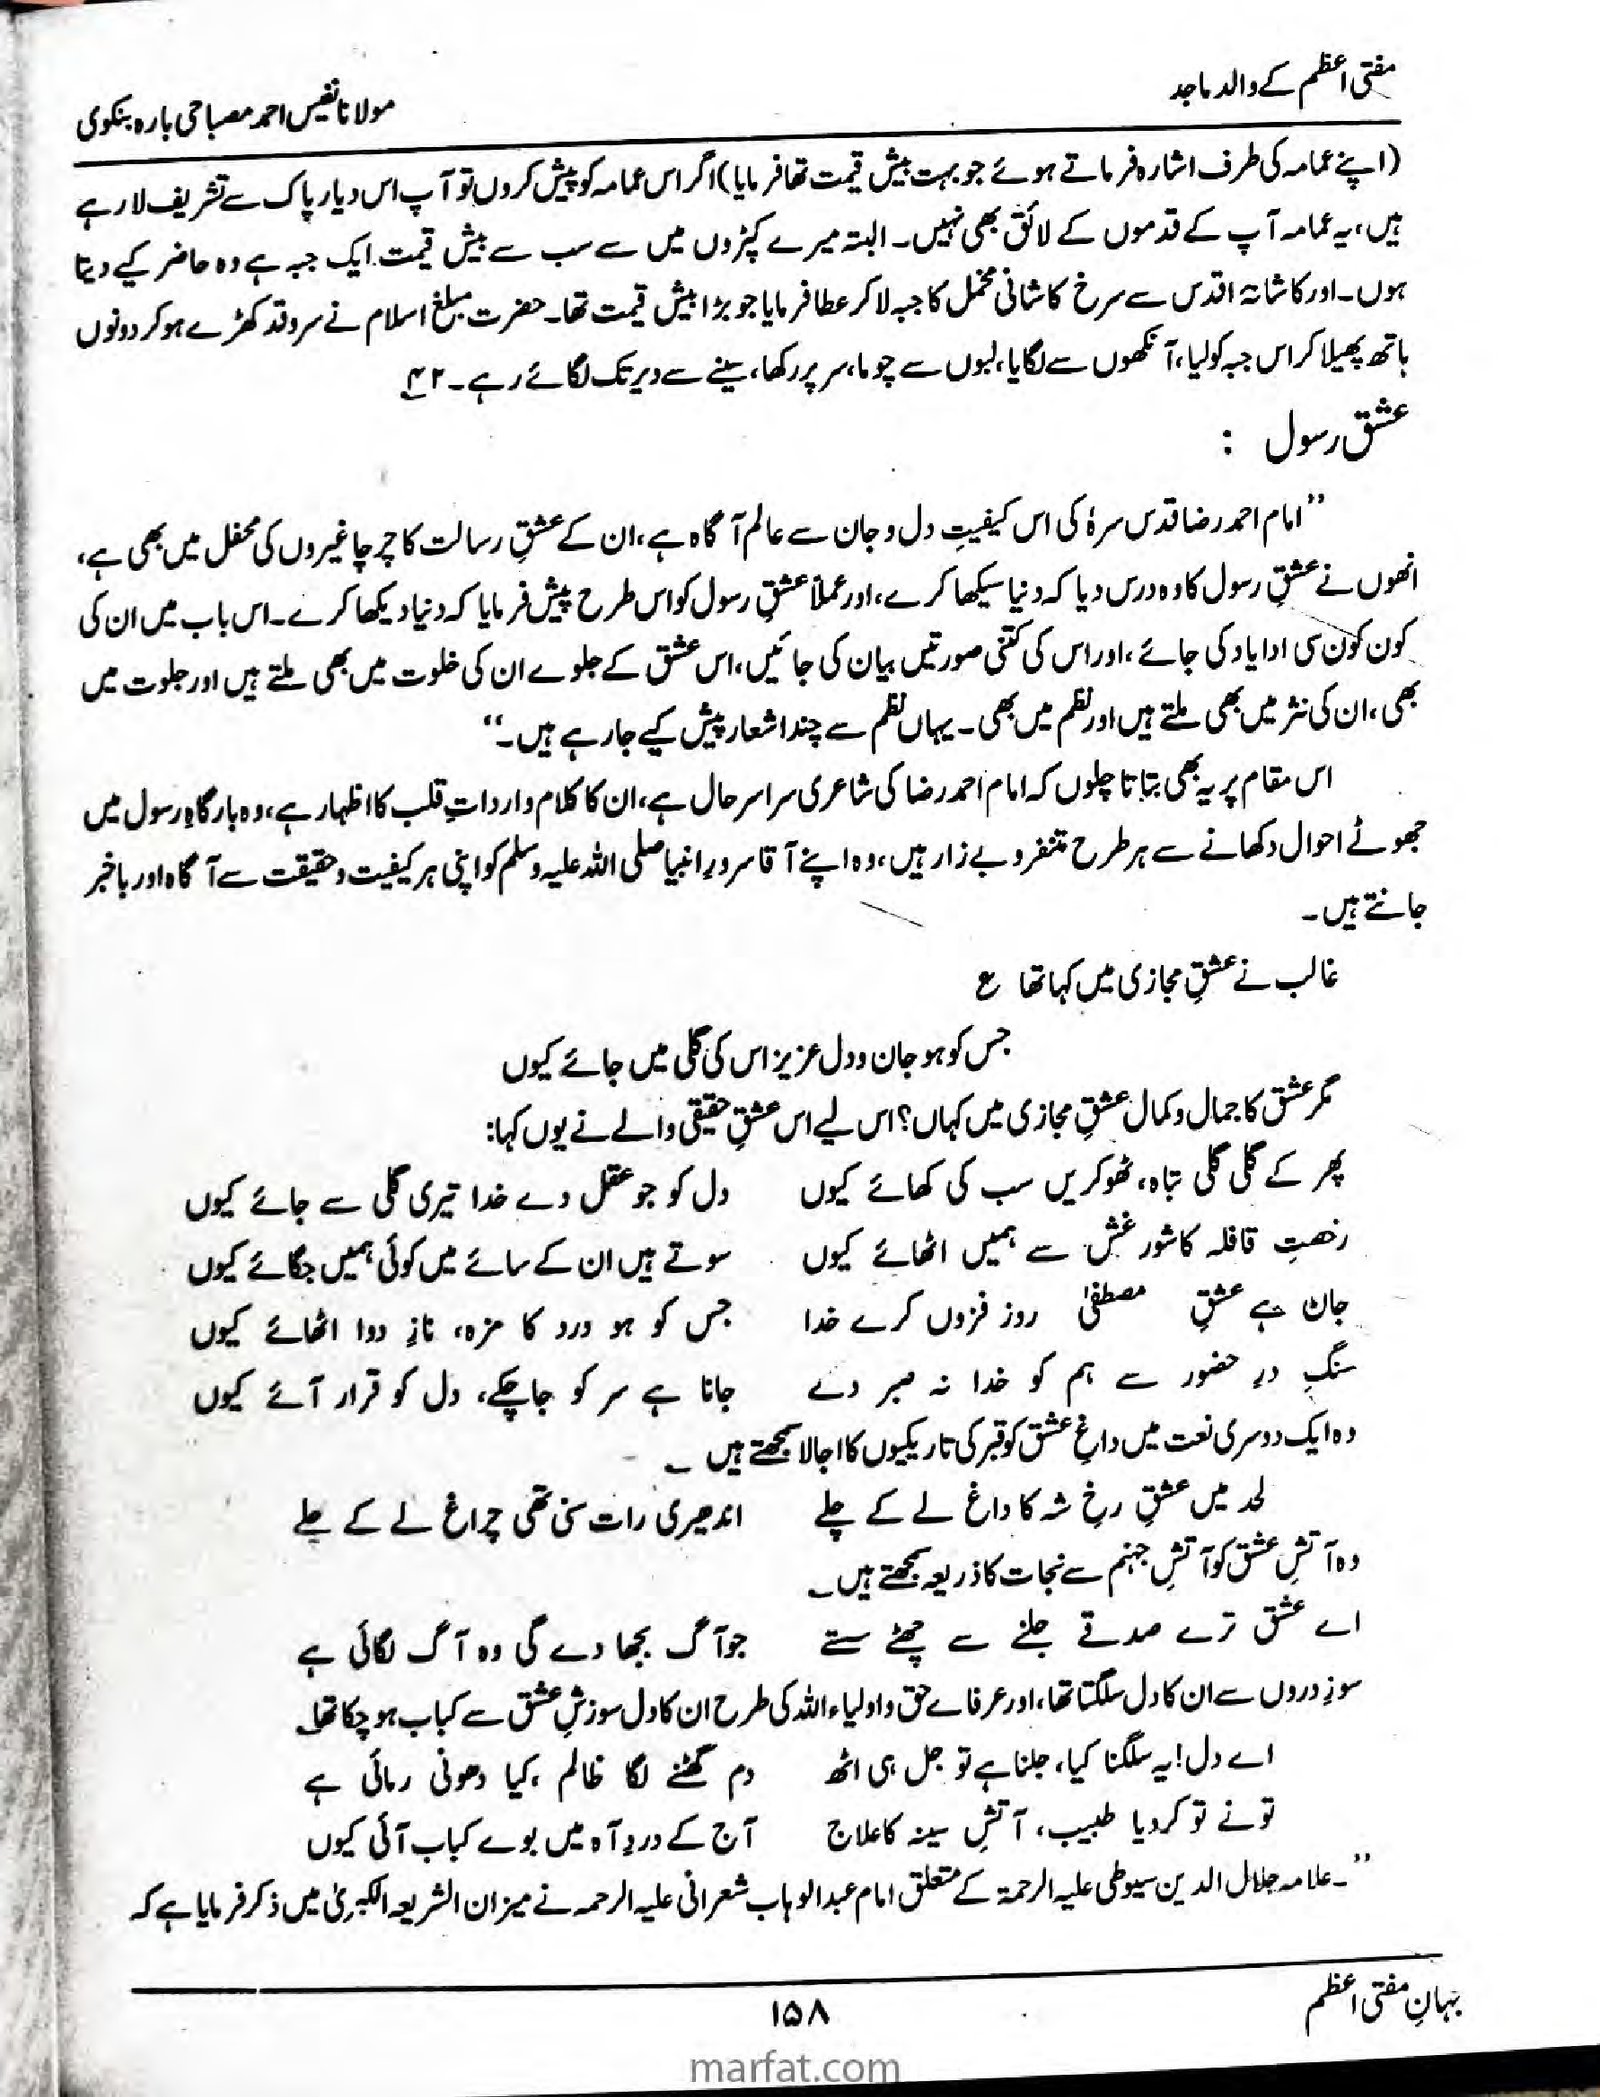 مفتی اعظم کے والد ماجد
مولانا نفیس احمد مصباحی بارہ بنکوی
(اپنے عمامہ کی طرف اشارہ فرماتے ہوئے جو بہت بیش قیمت تھا فرمایا) اگر اس عمامہ کو پیش کروں تو آپ اس دیار پاک سے تشریف لا رہے
ہیں، یہ عمامہ آپ کے قدموں کے لائق بھی نہیں۔ البتہ میرے کپڑوں میں سے سب سے بیش قیمت ایک جبہ ہے وہ حاضر کیے دیتا
ہوں۔ اور کاشانۂ اقدس سے سرخ کاشانی مخمل کا جبہ لا کر عطا فرمایا جو بڑا بیش قیمت تھا۔ حضرت مبلغ اسلام نے سرو قد کھڑے ہو کر دونوں
ہاتھ پھیلا کر اس جبہ کو لیا، آنکھوں سے لگایا، لبوں سے چوما، سر پر رکھا، سینے سے دیر تک لگائے رہے۔ ۴۲
عشق رسول :
”امام احمد رضا قدس سرہٗ کی اس کیفیتِ دل و جان سے عالم آگاہ ہے، ان کے عشقِ رسالت کا چرچا غیروں کی محفل میں بھی ہے،
انھوں نے عشقِ رسول کا وہ درس دیا کہ دنیا سیکھا کرے، اور عملاً عشقِ رسول کو اس طرح پیش فرمایا کہ دنیا دیکھا کرے۔ اس باب میں ان کی
کون کون سی ادا یاد کی جائے، اور اس کی کتنی صورتیں بیان کی جائیں، اس عشق کے جلوے ان کی خلوت میں بھی ملتے ہیں اور جلوت میں
بھی، ان کی نثر میں بھی ملتے ہیں اور نظم میں بھی۔ یہاں نظم سے چند اشعار پیش کیے جا رہے ہیں۔“
اس مقام پر یہ بھی بتاتا چلوں کہ امام احمد رضا کی شاعری سراسر حال ہے، ان کا کلام وارداتِ قلب کا اظہار ہے، وہ بارگاہِ رسول میں
جھوٹے احوال دکھانے سے ہر طرح متنفر و بے زار ہیں، وہ اپنے آقا سرورِ انبیا صلی اللہ علیہ وسلم کو اپنی ہر کیفیت و حقیقت سے آگاہ اور باخبر
جانتے ہیں۔
غالب نے عشقِ مجازی میں کہا تھا ع
جس کو ہو جان و دل عزیز اس کی گلی میں جائے کیوں
مگر عشق کا جمال و کمال عشقِ مجازی میں کہاں؟ اس لیے اس عشقِ حقیقی والے نے یوں کہا:
پھر کے گلی گلی تباہ، ٹھوکریں سب کی کھائے کیوں دل کو جو عقل دے خدا تیری گلی سے جائے کیوں
رخصتِ قافلہ کا شور غش سے ہمیں اٹھائے کیوں سوتے ہیں ان کے سائے میں کوئی ہمیں جگائے کیوں
جان ہے عشقِ مصطفیٰ روز فزوں کرے خدا جس کو ہو درد کا مزہ، نازِ دوا اٹھائے کیوں
سنگِ درِ حضور سے ہم کو خدا نہ صبر دے جانا ہے سر کو جا چکے، دل کو قرار آئے کیوں
وہ ایک دوسری نعت میں داغِ عشق کو قبر کی تاریکیوں کا اجالا سمجھتے ہیں ؎
لحد میں عشقِ رخِ شہ کا داغ لے کے چلے اندھیری رات سنی تھی چراغ لے کے چلے
وہ آتشِ عشق کو آتشِ جہنم سے نجات کا ذریعہ سمجھتے ہیں ؎
اے عشق ترے صدقے جلنے سے چھٹے سستے جو آگ بجھا دے گی وہ آگ لگائی ہے
سوزِ دروں سے ان کا دل سلگتا تھا، اور عرفاے حق و اولیاء اللہ کی طرح ان کا دل سوزشِ عشق سے کباب ہو چکا تھا۔
اے دل! یہ سلگنا کیا، جلنا ہے تو جل ہی اٹھ دم گھٹنے لگا ظالم، کیا دھونی رمائی ہے
تو نے تو کر دیا طبیب، آتشِ سینہ کا علاج آج کے دردِ آہ میں بوے کباب آئی کیوں
”۔علامہ جلال الدین سیوطی علیہ الرحمۃ کے متعلق امام عبد الوہاب شعرانی علیہ الرحمہ نے میزان الشریعۃ الکبریٰ میں ذکر فرمایا ہے کہ
جہانِ مفتی اعظم
۱۵۸
marfat.com